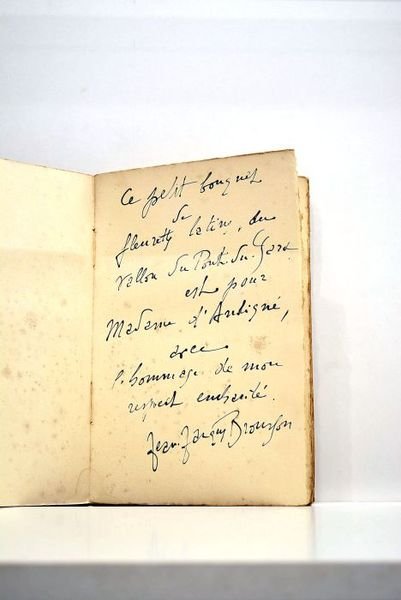 Ce petit bouquet
de
fleurettes latines, du
vallon du Pont-du-Gard
est pour
Madame d'Aubigné,
avec
l'hommage de mon
respect enchanté.
Jean-Jacques Brousson